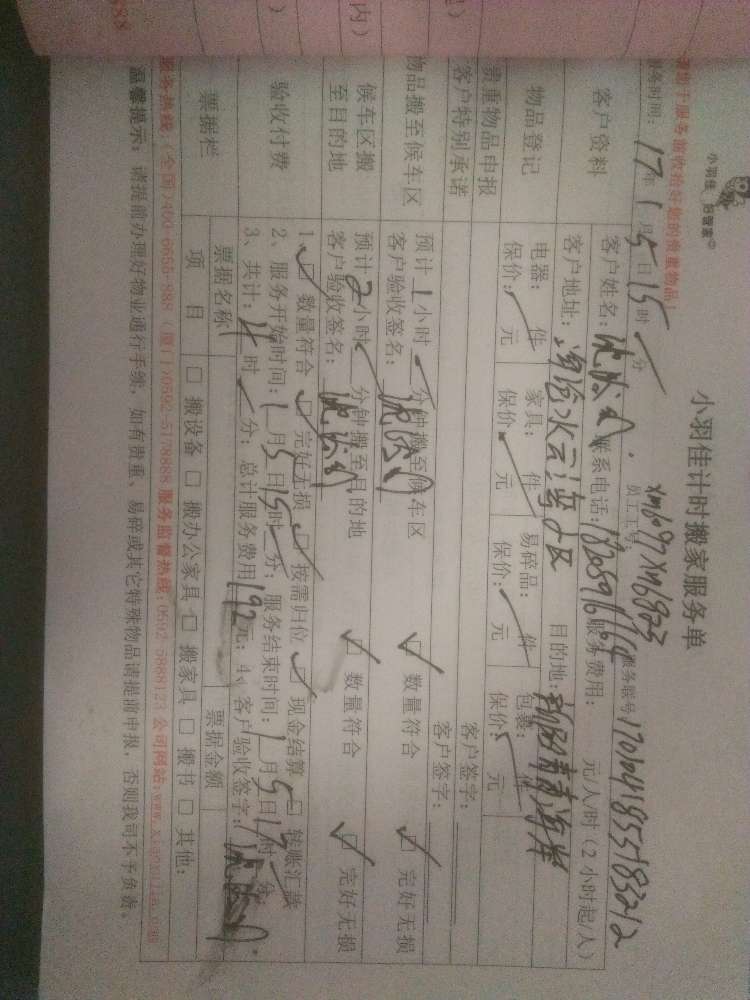 小羽佳 好管家
小羽佳计时搬家服务单
服务时间: 17年1月5日15时 分
员工工号: xm6697 xm6823
服务账号 1701041855183212
客户资料
客户姓名: 联系电话: 服务费用: 元/人/时(2小时起/人)
客户地址: 水云湾小区 目的地:
物品登记
电器: 件 家具: 件 易碎品: 件 包裹: 件
保价: 元 保价: 元 保价: 元 保价: 元
贵重物品申报 客户签字:
客户特别承诺 客户签字:
物品搬至候车区
预计1小时 分钟搬至候车区 ☑ 数量符合 ☑ 完好无损
客户验收签名:
候车区搬至目的地
预计2小时 分钟搬至目的地 ☑ 数量符合 ☑ 完好无损
客户验收签名:
验收付费
1、☑ 数量符合 ☑ 完好无损 ☑ 按需归位 ☑ 现金结算 □ 转账汇款
2、服务开始时间:1月5日15时 分; 服务结束时间:1月5日 时 分
3、共计:4时 分; 总计服务费用192元; 4、客户验收签字:
票据栏
票据名称 票据金额
项 目 □ 搬设备 □ 搬办公家具 □ 搬家具 □ 搬书 □ 其他:
服务热线:(全国)400-6655-888 (厦门)0592-5178888 服务监督热线:0592-5888123 公司网站:www.xiaoyujia.com
温馨提示: 请提前办理好物业通行手续, 如有贵重、易碎或其它特殊物品请提前申报, 否则我司不予负责。